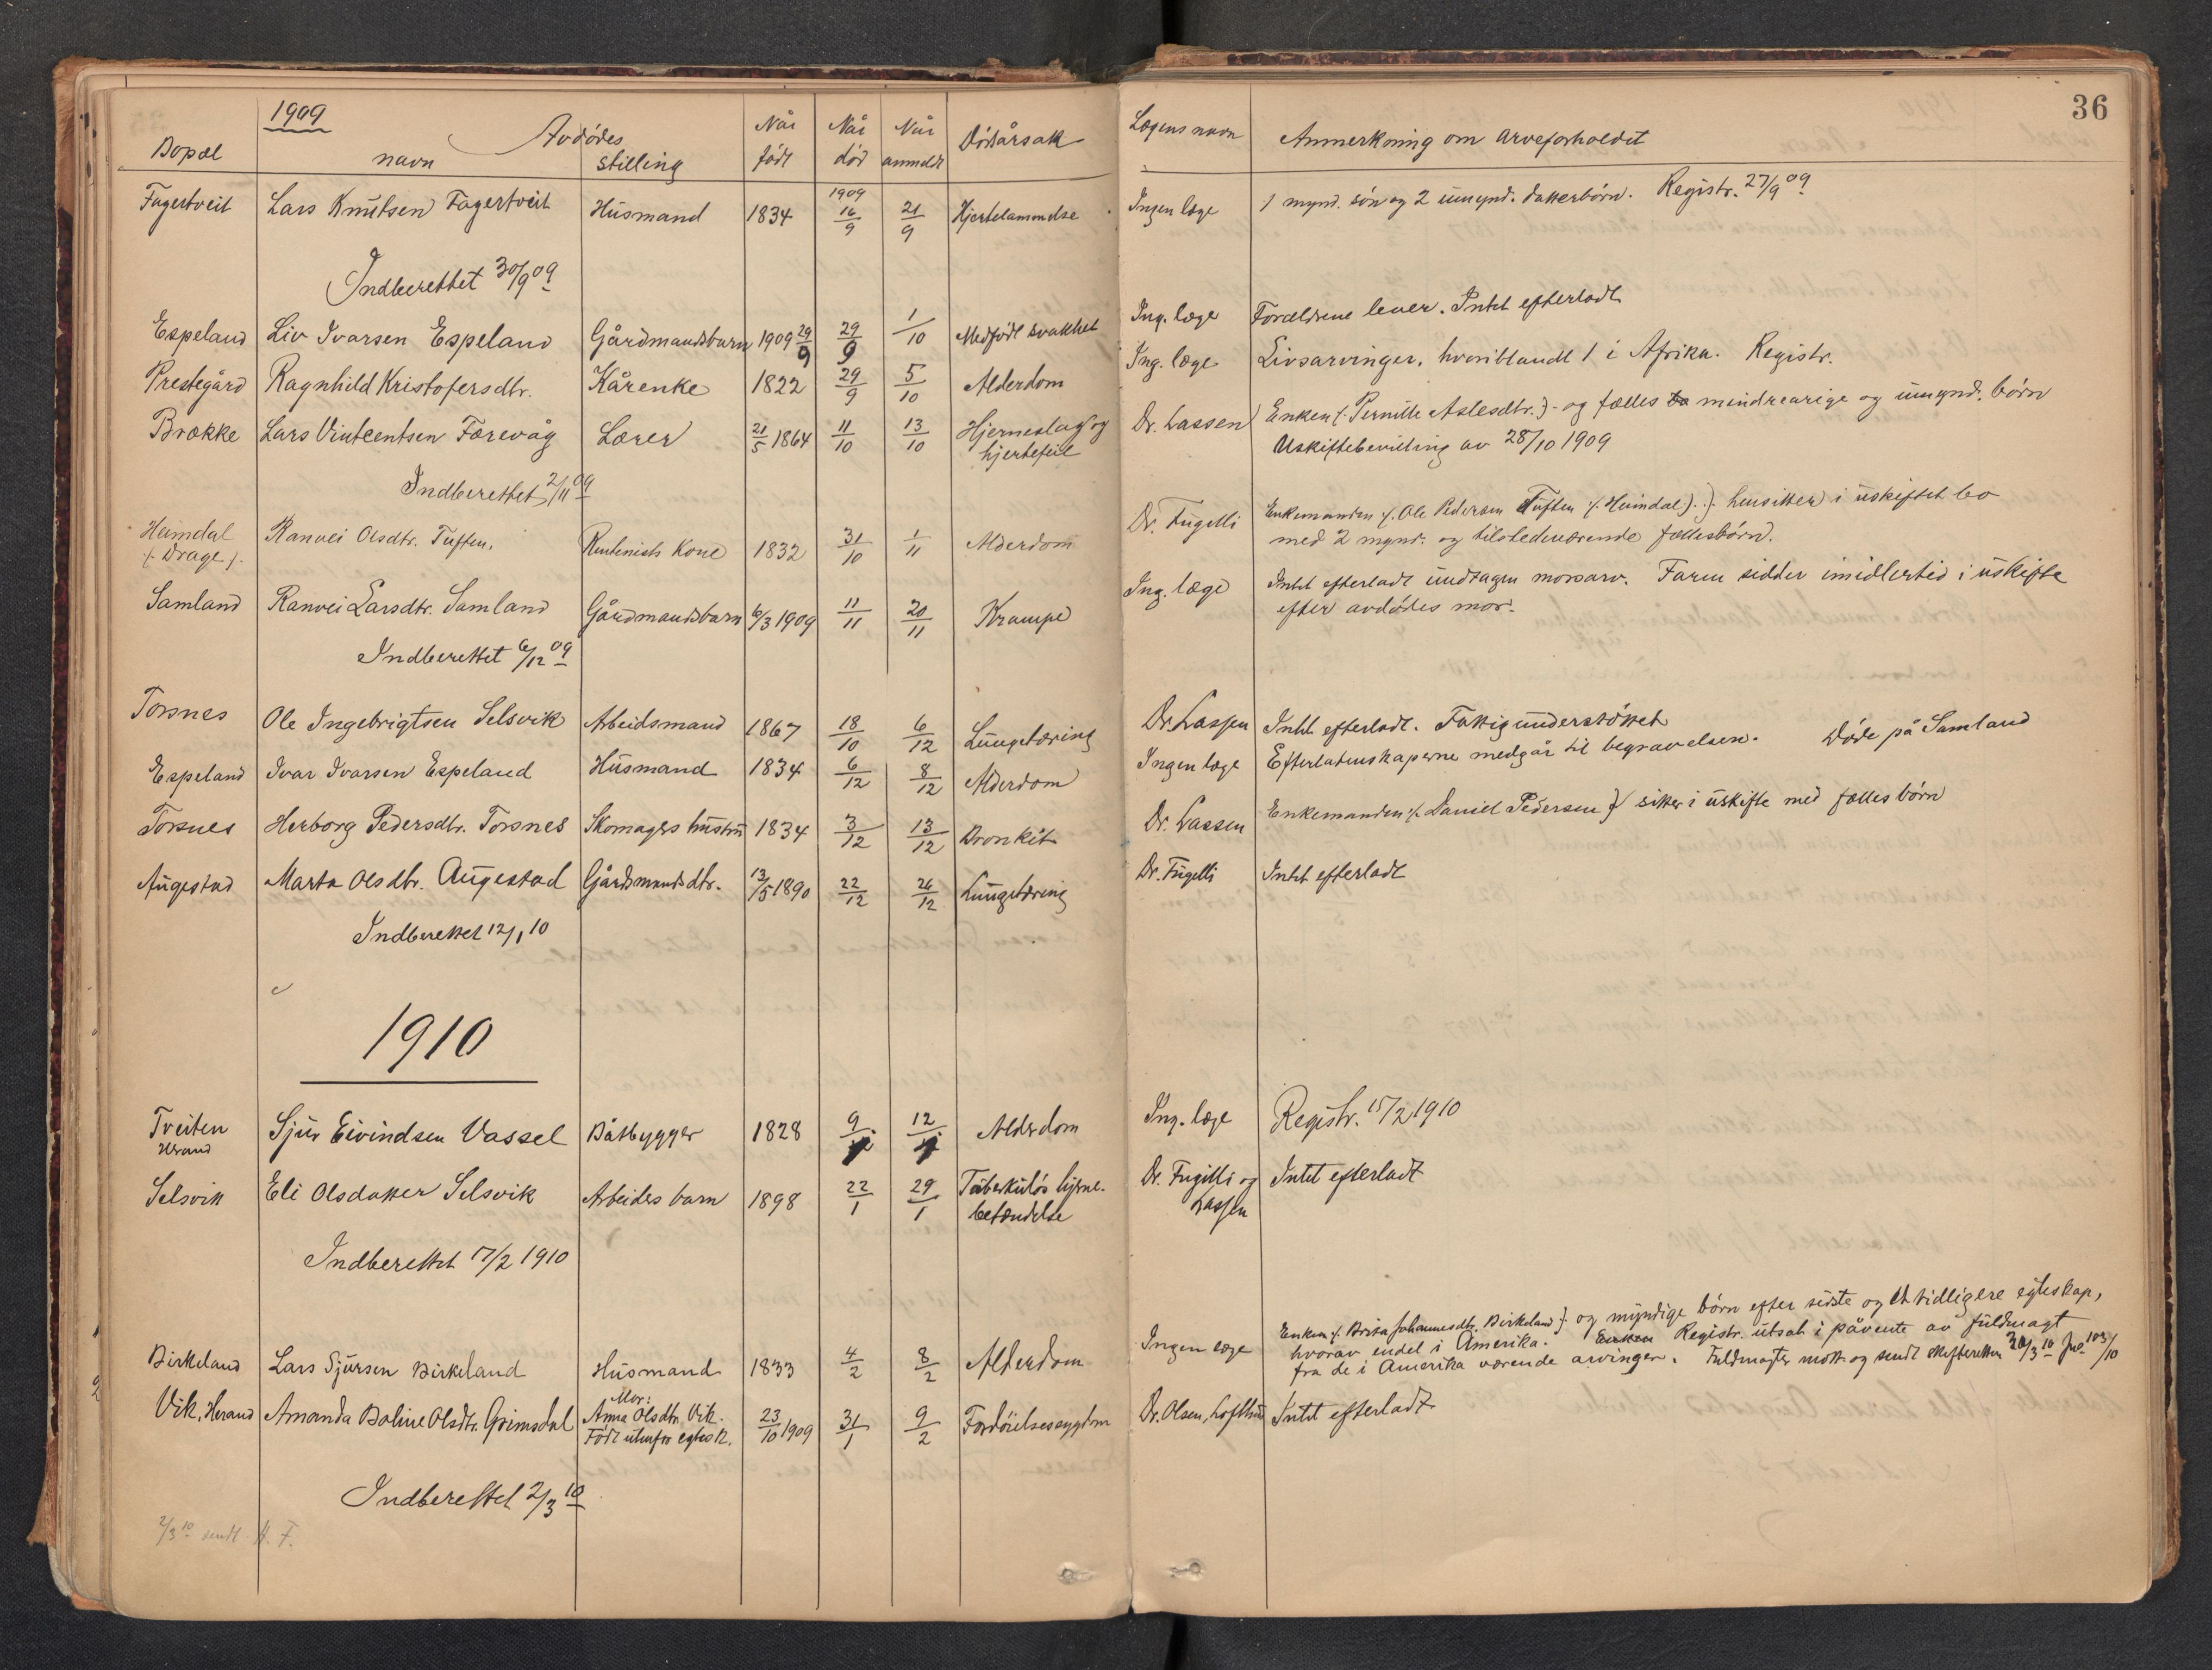 36
1909
Bopæl Avdødes navn stilling Når født Når død Når anmeldt Dødsårsak Lægens navn Anmerkning om arveforholdet
Fagertveit Lars Knutsen Fagertveit Husmand 1834 1909 16/9 21/9 Hjertelammelse Ingen læge 1 mynd. søn og 2 umynd. datterbørn. Registr. 27/9 09
Indberettet 30/9 09
Espeland Liv Ivarsen Espeland Gårdmandsbarn 1909 29/9 29/9 1/10 Medfødt svakhet Ing. læge Forældrene lever. Intet efterladt
Prestegård Ragnhild Kristofersdtr. Kårenke 1822 29/9 5/10 Alderdom Ing. læge Livsarvinger, hvoriblandt 1 i Afrika. Registr.
Brække Lars Vintcentsen Færevåg Lærer 21/5 1864 11/10 13/10 Hjerneslag og hjertefeil Dr. Lassen Enken (: Pernille Aslesdtr. :) og fælles mindreårige og umynd. børn
Uskiftebevilling av 28/10 1909
Indberettet 2/11 09
Heimdal (: Drage :) Ranvei Olsdtr. Tuften. Rentenists Kone 1832 31/10 1/11 Alderdom Dr. Fugelli Enkemanden (: Ole Pedersen Tuften (: Heimdal) :) hensitter i uskiftet bo
med 2 mynd. og tilstedeværende fællesbørn.
Samland Ranvei Larsdtr. Samland Gårdmandsbarn 6/3 1909 11/11 20/11 Krampe Ing. læge Intet efterladt undtagen morsarv. Faren sidder imidlertid i uskifte
efter avdødes mor.
Indberettet 6/12 09
Torsnes Ole Ingebrigtsen Selsvik Arbeidsmand 1867 18/10 6/12 Lungetæring Dr. Lassen Intet efterladt. Fattigunderstøttet Døde på Samland
Espeland Ivar Ivarsen Espeland Husmand 1834 6/12 8/12 Alderdom Ingen læge Efterladenskaperne medgår til begravelsen.
Torsnes Herborg Pedersdtr. Torsnes Skomagers hustru 1834 3/12 13/12 Bronkit Dr. Lassen Enkemanden (: Daniel Pedersen :) sitter i uskifte med fælles børn
Augestad Marta Olsdtr. Augestad Gårdmandsdtr. 13/5 1890 22/12 26/12 Lungetæring Dr. Fugelli Intet efterladt
Indberettet 12/1 10
1910
Tveiten Herand Sjur Eivindsen Vassel Båtbygger 1828 9/1 12/1 Alderdom Ing. læge Registr. 15/2 1910
Selsvik Eli Olsdatter Selsvik Arbeiders barn 1898 22/1 29/1 Tuberkuløs hjernebetændelse Dr. Fugelli og Lassen Intet efterladt
Indberettet 17/2 1910
Birkeland Lars Sjursen Birkeland Husmand 1833 4/2 8/2 Alderdom Ingen læge Enken (: Brita Johannesdtr. Birkeland :) og myndige børn efter sidste og et tidligere egteskap,
hvorav endel i Amerika. Enken Registr. utsat i påvente av fuldmagt
fra de i Amerika værende arvinger. Fuldmagter mott. og sendt skifteretten 20/3 10 Jno. 103/10
Vik, Herand Amanda Boline Olsdtr. Grimsdal Mor: Anna Olsdtr. Vik. Født utenfor egtesk. 23/10 1909 31/1 9/2 Fordøielsessygdom Dr. Olsen, Lofthus Intet efterladt
Indberettet 2/3 10
2/3 10 sendt A. F.